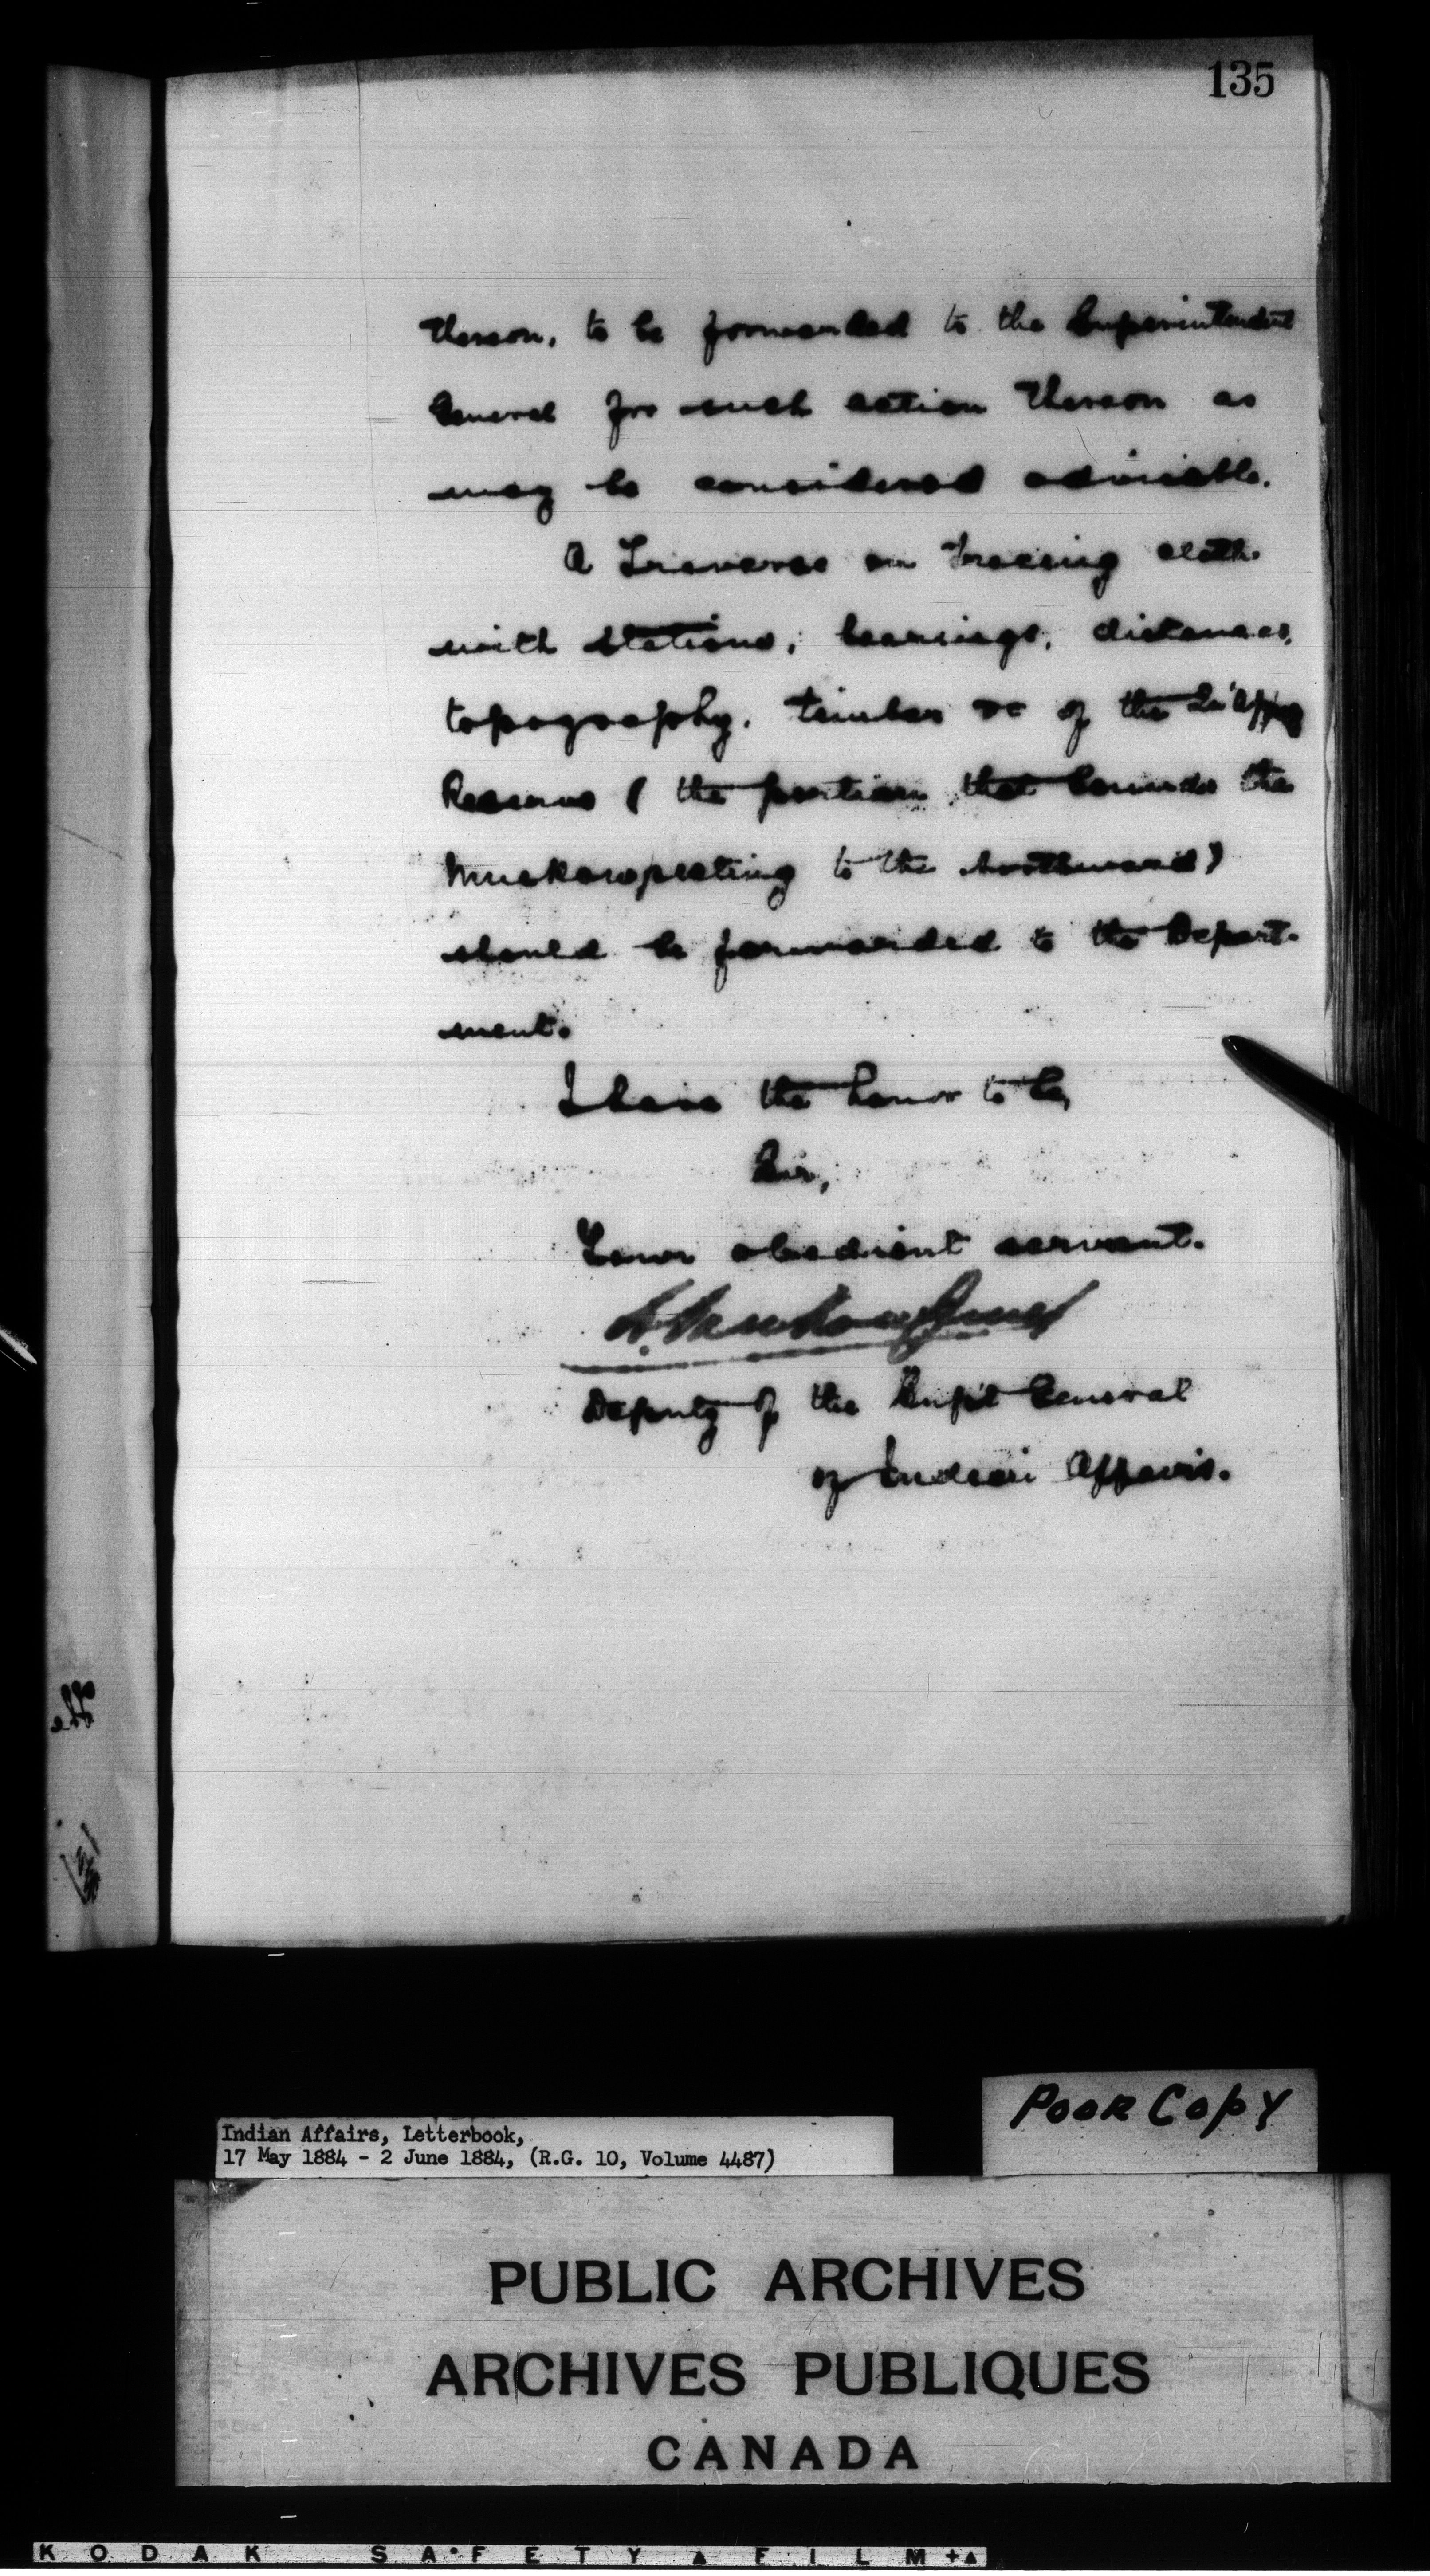 135
thereon, to be forwarded to the Superintendent
General for such action thereon as
may be considered advisable.
A Traverse on tracing cloth
with stations, bearings, distances,
topography, timber &c of the Qu'Appelle
Reserve (the portion that bounds the
Muskowpeting to the northward)
should be forwarded to the Depart-
ment.
I have the honor to be,
Sir,
Your obedient servant.
L. Vankoughnet
Deputy of the Supt General
of Indian Affairs.
The
Poor Copy
Indian Affairs, Letterbook,
17 May 1884 - 2 June 1884, (R.G. 10, Volume 4487)
PUBLIC ARCHIVES
ARCHIVES PUBLIQUES
CANADA
KODAK SAFETY FILM